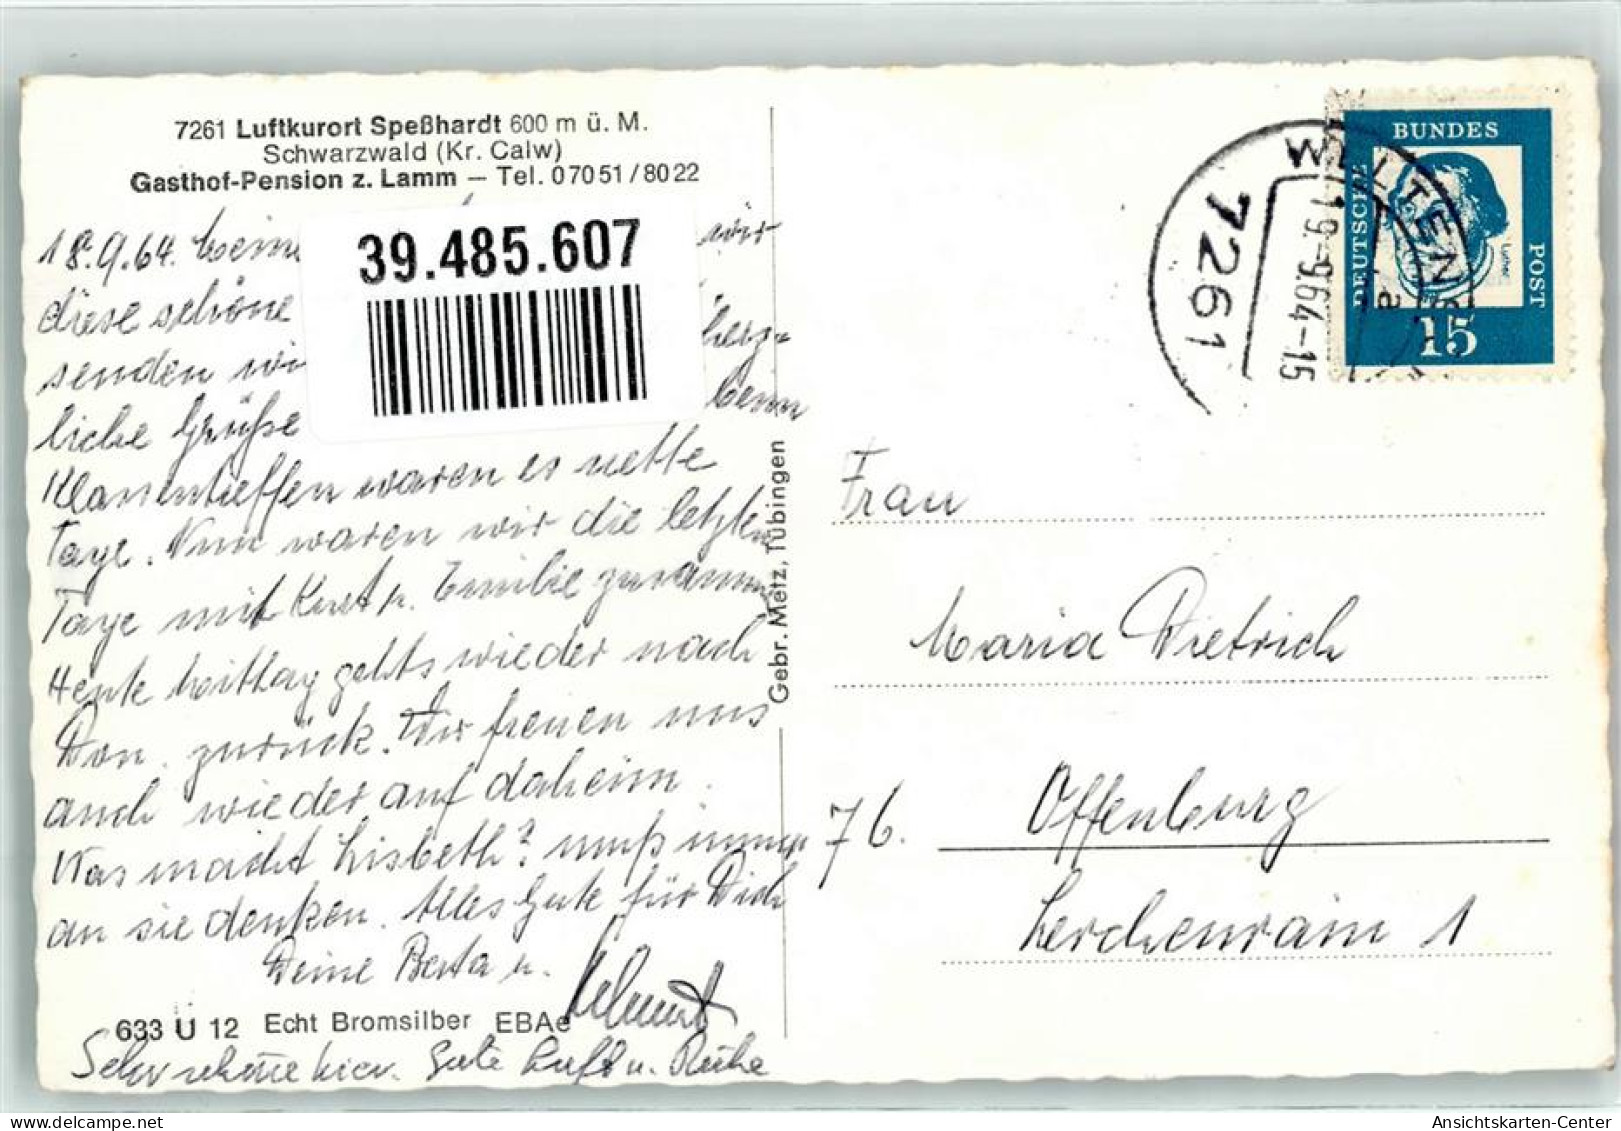 7261 Luftkurort Speßhardt 600 m ü. M.
Schwarzwald (Kr. Calw)
Gasthof-Pension z. Lamm – Tel. 07051/8022
39.485.607
18.9.64. wir
diese schöne
senden herz-
liche Grüße beim
Klassentreffen waren es nette
Tage. Nun waren wir die letzten
Tage mit Kurt u. Emilie zusammen
Heute Mittag gehts wieder nach
Don. zurück. Wir freuen uns
auch wieder auf daheim.
Was macht Lisbeth? muß immer
an sie denken. Alles Gute für Dich
Deine Berta u. Helmut
633 U 12 Echt Bromsilber EBAe
Sehr schöne hier. Gute Luft u. Ruhe
Gebr. Metz, Tübingen
7261
19.-9.64-15
a
DEUTSCHE
BUNDES
POST
Luther
15
Frau
Maria Dietrich
76. Offenburg
Lerchenrain 1
Ansichtskarten-Center